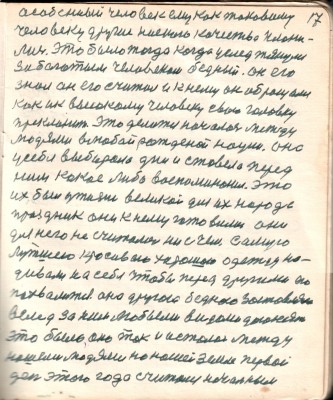 17
особенный человек ему как таковому
человеку другие низкого качества клони-
лись. Это было тогда когда услед тянули
за богатым человеком бедный. он его
знал он его считал и к нему он обращался
как к высокому человеку свою головку
преклонить это делать началось между
людями в любой рожденой нации. она
у себя выбирала дни и ставела перед
ним какое либо воспоминания. Это
их был праздник великой для их народа
праздник они к нему готовили они
для него не считались ни с чем самую
лутшею красивою хорошою одежду на-
девали на себя чтобы перед другими по
похвалится. она другого бедного заставляла
вслед за ним любыми видами догонять
это было, оно так и осталось между
нашеми людями на нашей земле первой
день этого года считали начальным